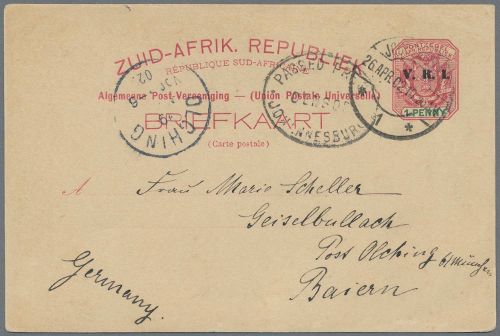 ZUID-AFRIK. REPUBLIEK
RÉPUBLIQUE SUD-AFRICAINE
Algemeene Post-Vereeniging — (Union Postale Universelle)
BRIEFKAART
(Carte postale)
V. R. I.
1 PENNY
PASSED PRESS CENSOR
JOHANNESBURG
26 APR. 02
1
OLCHING
02.
A
Frau Marie Scheller
Geiselbullach
Post Olching b/München
Baiern
Germany.